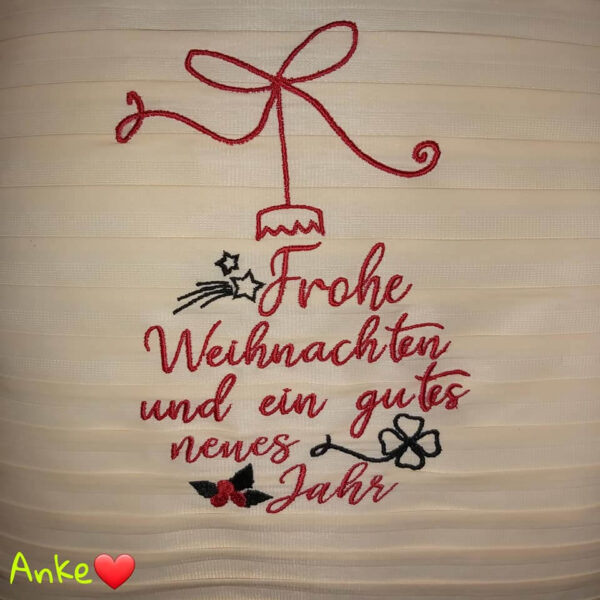 Frohe
Weihnachten
und ein gutes
neues
Jahr
Anke❤️